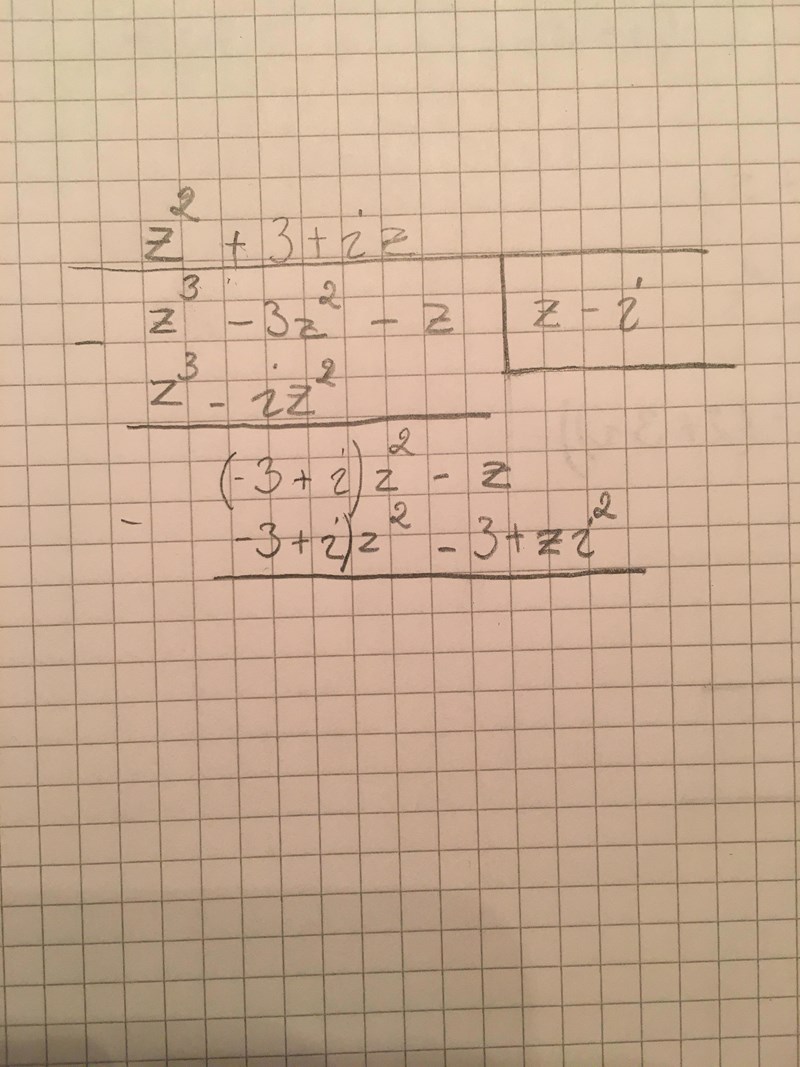 z² + 3 + i z
z³ - 3z² - z | z - i
- z³ - iz²
(-3 + i) z² - z
- -3 + i) z² - 3 + z i²